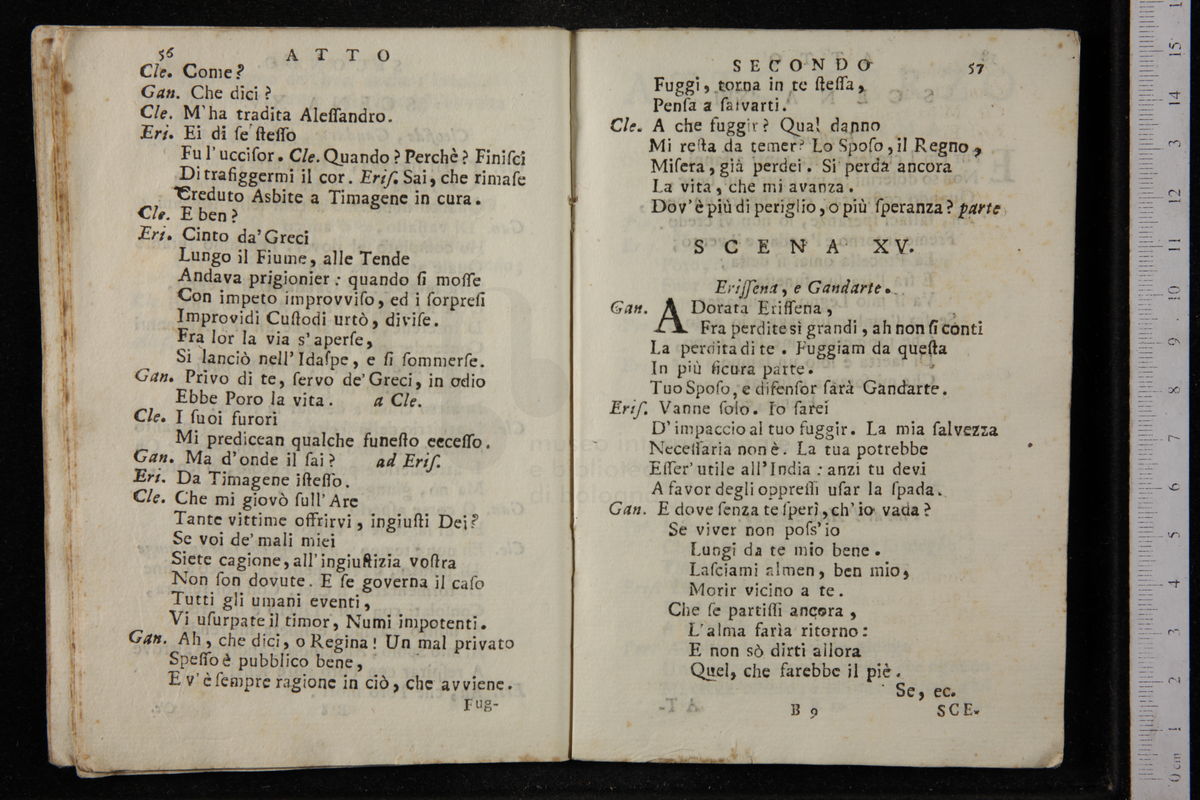 56 ATTO
Cle. Come?
Gan. Che dici?
Cle. M'ha tradita Aleſſandro.
Eri. Ei di ſe ſteſſo
Fu l'ucciſor. Cle. Quando? Perchè? Finiſci
Di trafiggermi il cor. Eriſ. Sai, che rimaſe
Creduto Asbite a Timagene in cura.
Cle. E ben?
Eri. Cinto da' Greci
Lungo il Fiume, alle Tende
Andava prigionier: quando ſi moſſe
Con impeto improvviſo, ed i ſorpreſi
Improvidi Cuſtodi urtò, diviſe.
Fra lor la via s'aperſe,
Si lanciò nell'Idaſpe, e ſi ſommerſe.
Gan. Privo di te, ſervo de' Greci, in odio
Ebbe Poro la vita. a Cle.
Cle. I ſuoi furori
Mi predicean qualche funeſto ecceſſo.
Gan. Ma d'onde il ſai? ad Eriſ.
Eri. Da Timagene iſteſſo.
Cle. Che mi giovò ſull'Are
Tante vittime offrirvi, ingiuſti Dei?
Se voi de' mali miei
Siete cagione, all'ingiuſtizia voſtra
Non ſon dovute. E ſe governa il caſo
Tutti gli umani eventi,
Vi uſurpate il timor, Numi impotenti.
Gan. Ah, che dici, o Regina! Un mal privato
Speſſo è pubblico bene,
E v'è ſempre ragione in ciò, che avviene.
Fug-
SECONDO 57
Fuggi, torna in te ſteſſa,
Penſa a ſalvarti.
Cle. A che fuggir? Qual danno
Mi reſta da temer? Lo Spoſo, il Regno,
Miſera, già perdei. Si perda ancora
La vita, che mi avanza.
Dov'è più di periglio, o più ſperanza? parte
SCENA XV.
Eriſſena, e Gandarte.
Gan. ADorata Eriſſena,
Fra perdite sì grandi, ah non ſi conti
La perdita di te. Fuggiam da queſta
In più ſicura parte.
Tuo Spoſo, e difenſor ſarà Gandarte.
Eriſ. Vanne ſolo. Io ſarei
D'impaccio al tuo fuggir. La mia ſalvezza
Neceſſaria non è. La tua potrebbe
Eſſer' utile all'India: anzi tu devi
A favor degli oppreſſi uſar la ſpada.
Gan. E dove ſenza te ſperi, ch'io vada?
Se viver non poſs'io
Lungi da te mio bene.
Laſciami almen, ben mio,
Morir vicino a te.
Che ſe partiſſi ancora,
L'alma farìa ritorno:
E non sò dirti allora
Quel, che farebbe il piè.
Se, ec.
B 9 SCE-